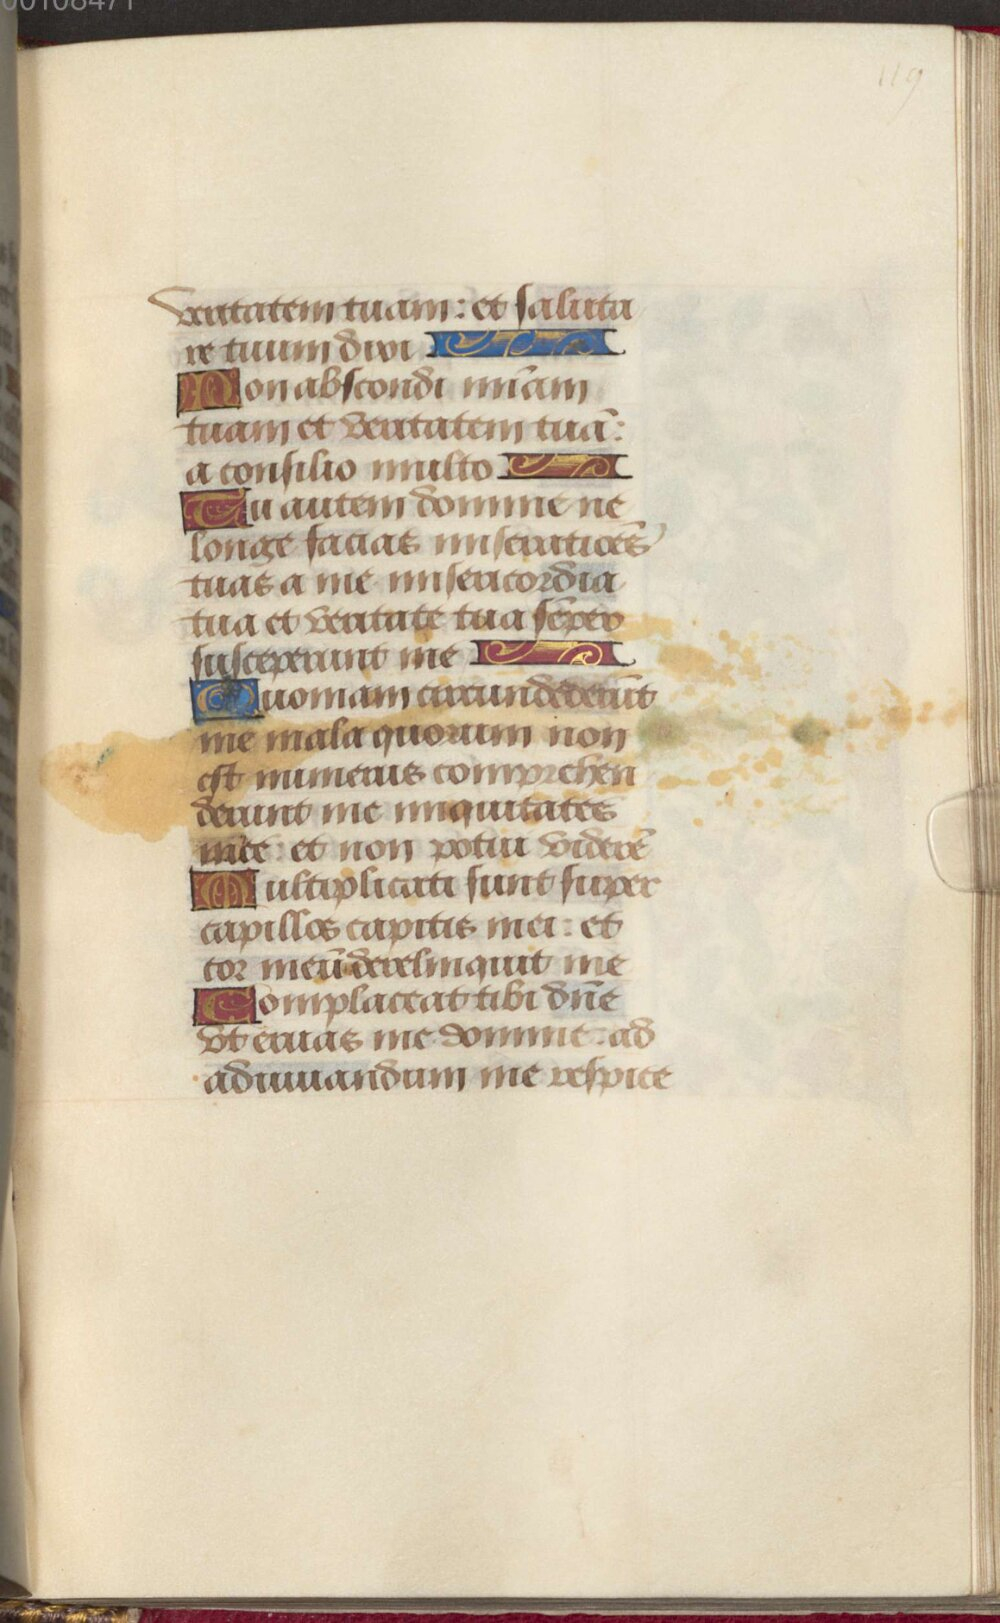 00108471
119
veritatem tuam: et saluta
re tuum dixi
Non abscondi mīam
tuam et veritatem tuā:
a consilio multo
Tu autem domine ne
longe facias miseratiões
tuas a me misericordia
tua et veritate tua sēper
susceperunt me
Quoniam circundederūt
me mala quorum non
est numerus comprehen
derunt me iniquitates
mee: et non potui viderē
Multiplicati sunt super
capillos capitis mei: et
cor meū dereliquit me
Complaceat tibi dn̄e
vt eruas me domine: ad
adiuuandum me respice